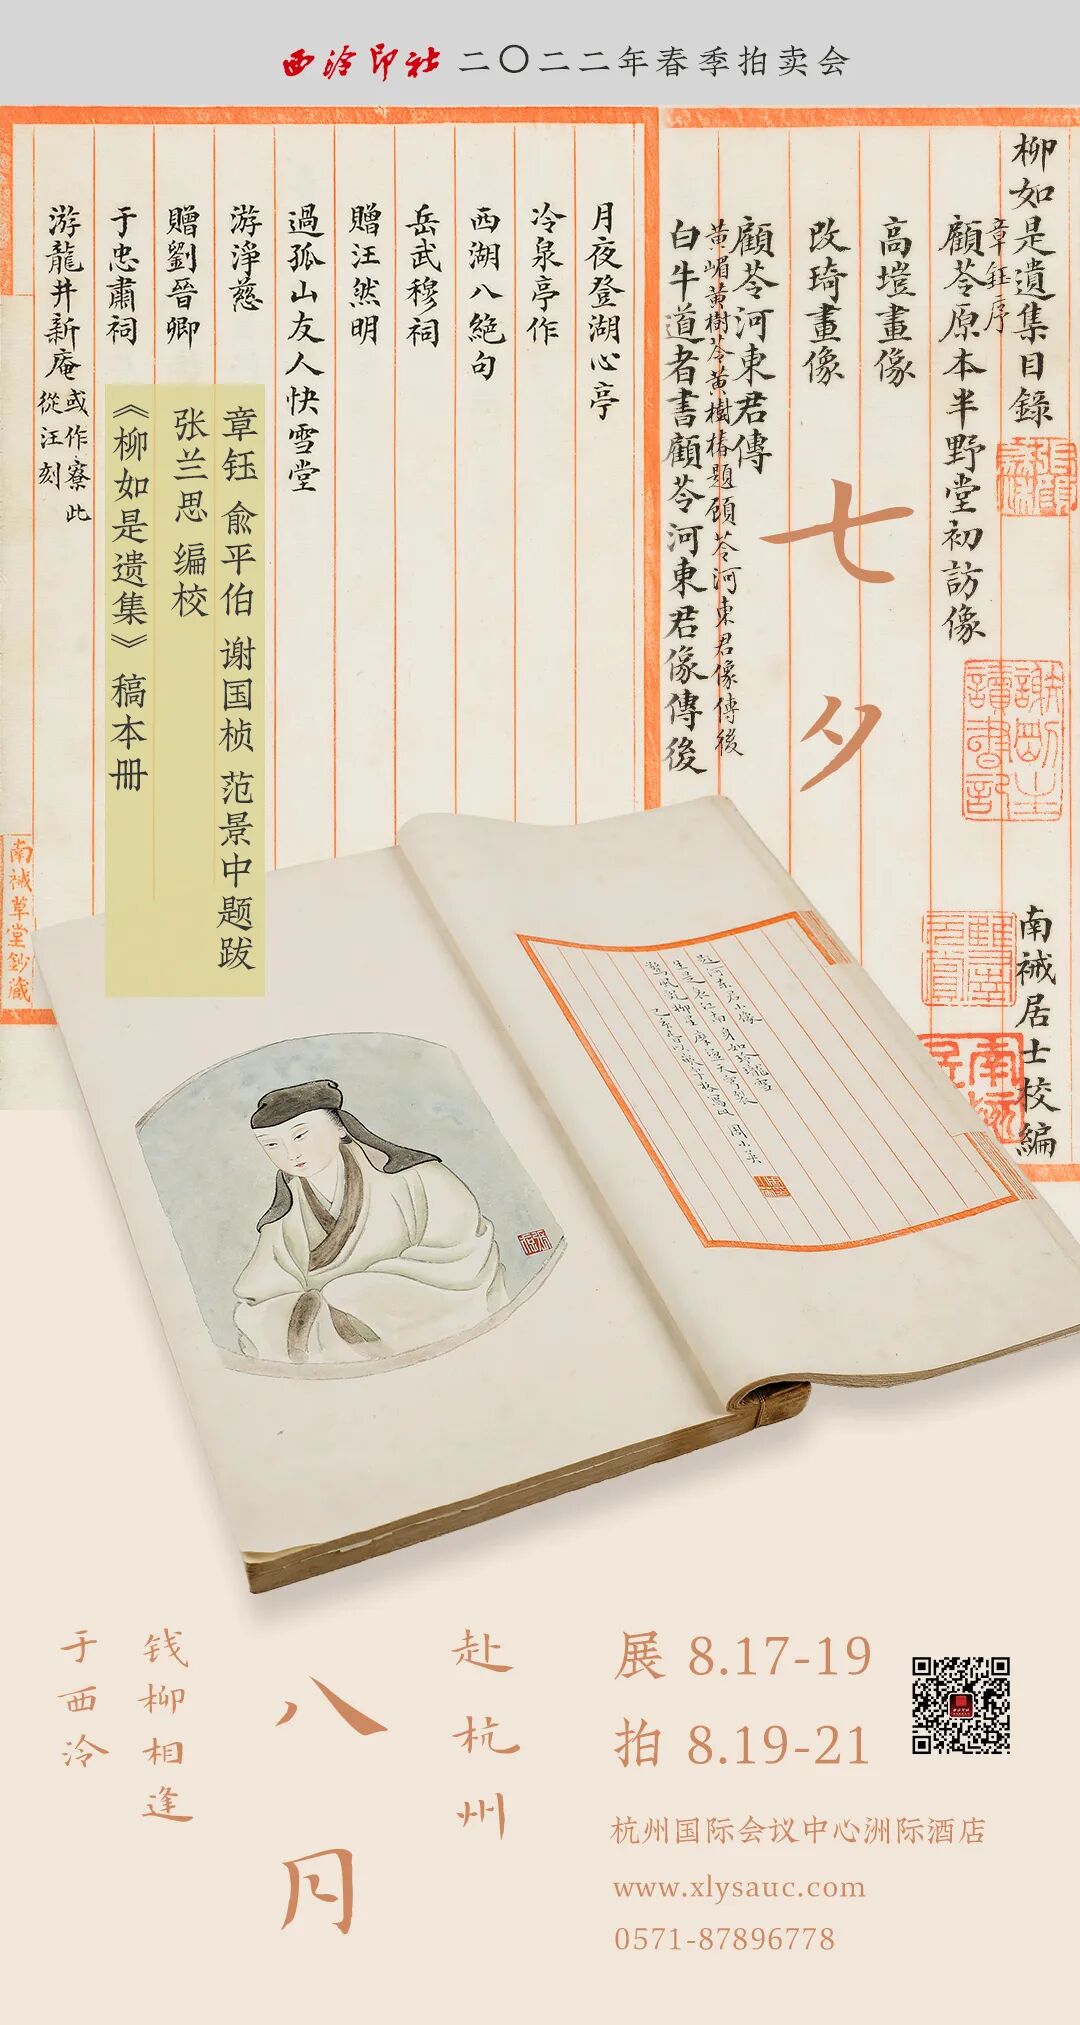 西泠印社 二〇二二年春季拍卖会
柳如是遺集目錄
章鈺序
顧苓原本半野堂初訪像
高塏畫像
改琦畫像
顧苓河東君傳
黃嵋黃樹苓黃樹椿題顧苓河東君像傳後
白牛道者書顧苓河東君像傳後
南裓居士校編
月夜登湖心亭
冷泉亭作
西湖八絕句
岳武穆祠
贈汪然明
過孤山友人快雪堂
游淨慈
贈劉晉卿
于忠肅祠
游龍井新庵 或作寮此從汪刻
南裓草堂鈔藏
七夕
章钰 俞平伯 谢国桢 范景中题跋
张兰思 编校
《柳如是遗集》 稿本册
謝剛主讀書記
题河东君小像
赴杭州
八月
钱柳相逢
于西泠
展 8.17-19
拍 8.19-21
杭州国际会议中心洲际酒店
www.xlysauc.com
0571-87896778